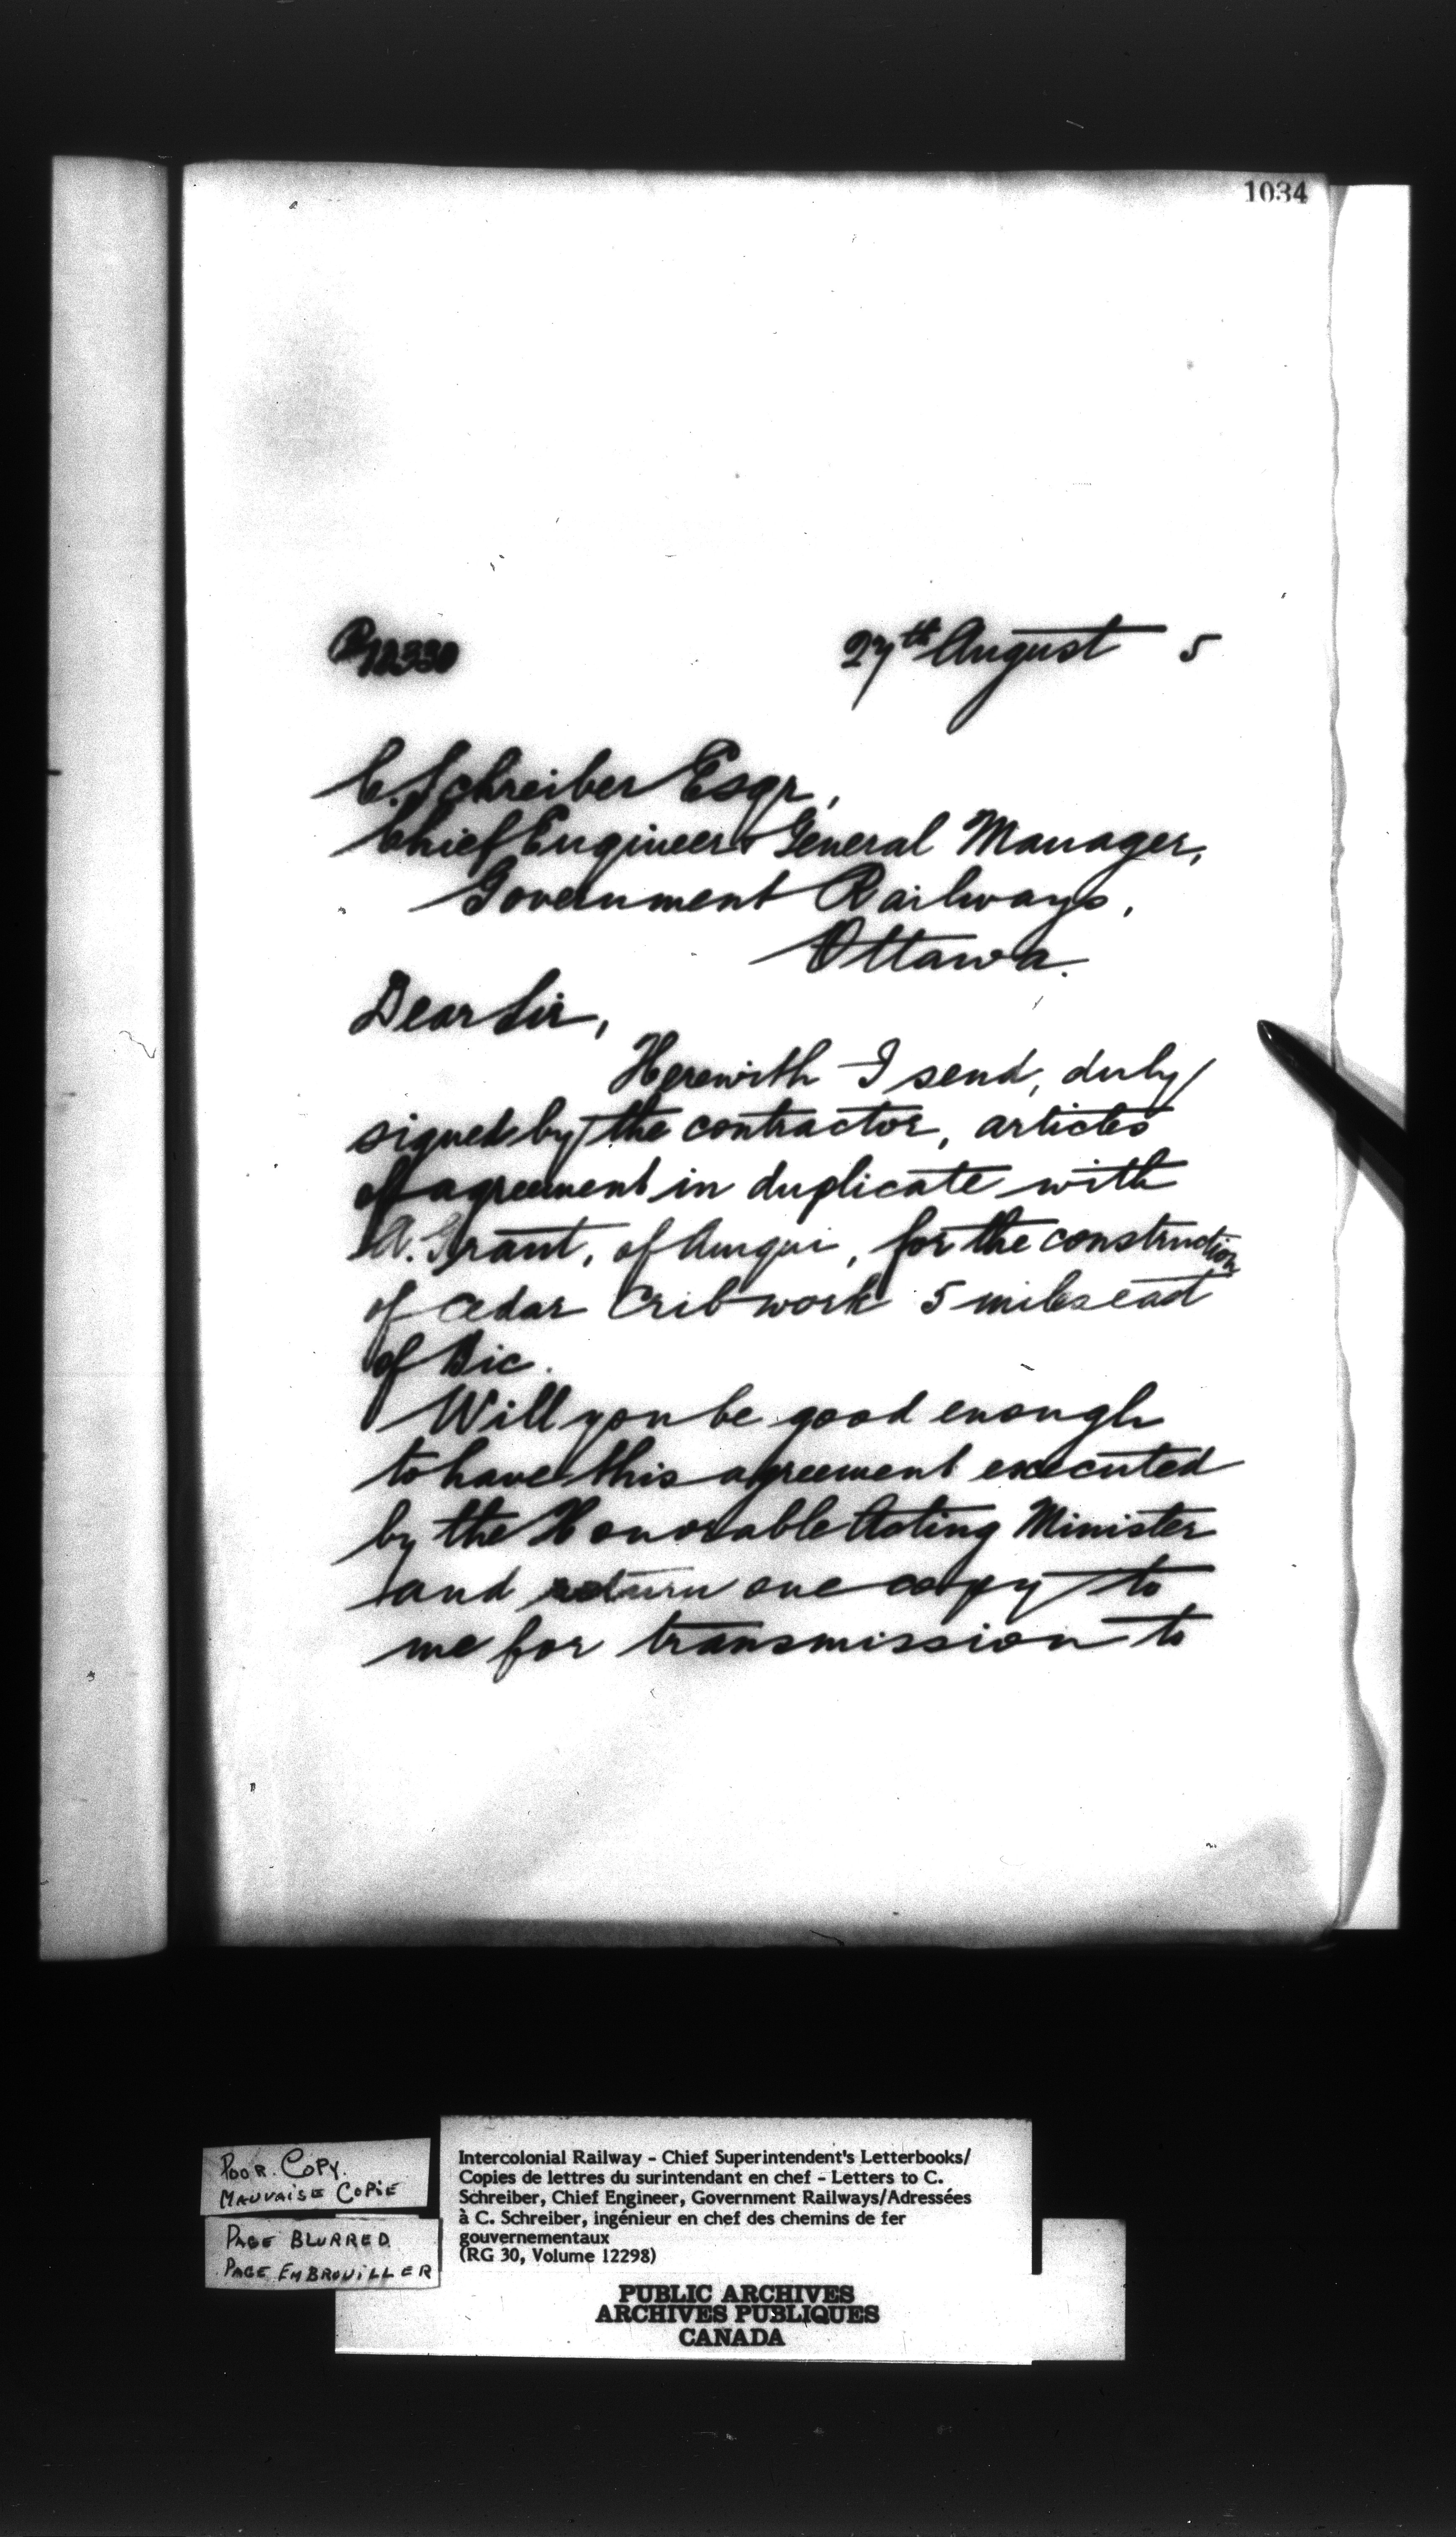 1034
P/12330
27th August 5
C. Schreiber Esqr,
Chief Engineer & General Manager,
Government Railways,
Ottawa.
Dear Sir,
Herewith I send, duly
signed by the contractor, articles
of agreement in duplicate with
A. Grant, of Amqui, for the construction
of cedar Cribwork 5 miles east
of Bic.
Will you be good enough
to have this agreement executed
by the Honorable Acting Minister
and return one copy to
me for transmission to
POOR COPY.
MAUVAISE COPIE
PAGE BLURRED
PAGE EMBROUILLER
Intercolonial Railway - Chief Superintendent's Letterbooks/
Copies de lettres du surintendant en chef - Letters to C.
Schreiber, Chief Engineer, Government Railways/Adressées
à C. Schreiber, ingénieur en chef des chemins de fer
gouvernementaux
(RG 30, Volume 12298)
PUBLIC ARCHIVES
ARCHIVES PUBLIQUES
CANADA